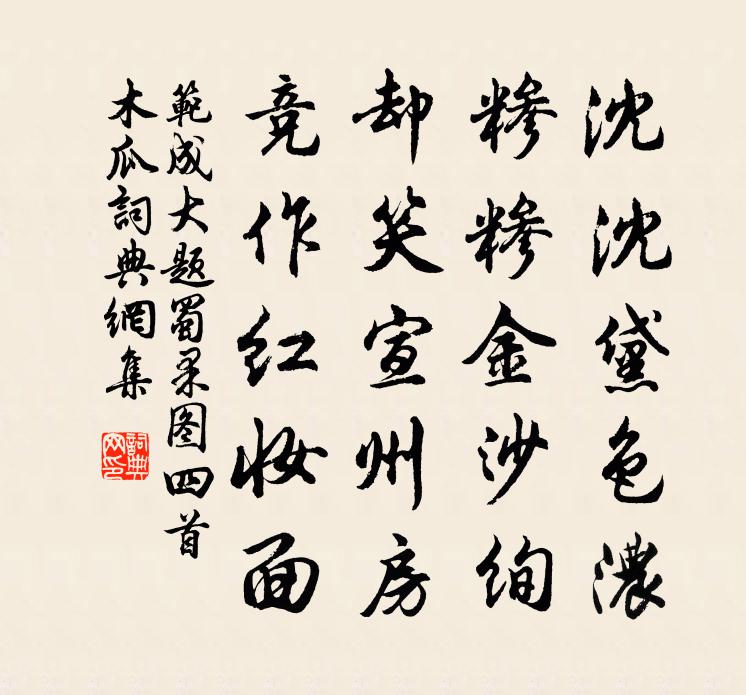 沈沈黛色濃
糝糝金沙絢
却笑宣州房
竞作红妆面
範成大题蜀果图四首
木瓜詞典網集
詞典网印